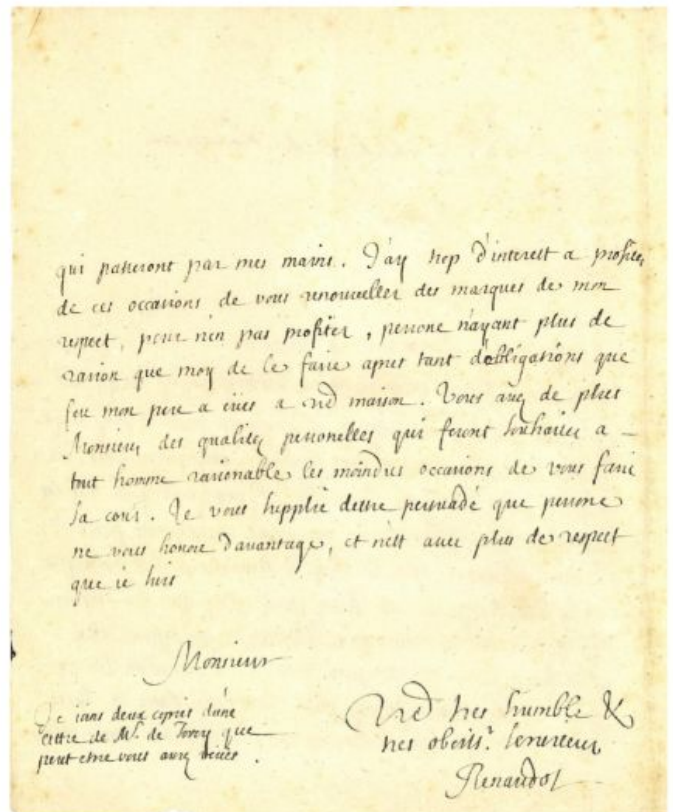 qui passeront par mes mains. J'ay trop d'interest a profiter
de ces occasions de vous renouveller des marques de mon
respect, pour n'en pas profiter, persone n'ayant plus de
raison que moy de le faire apres tant d'obligations que
feu mon pere a eües a vre maison. Vous avez de plus
Monsieur des qualitez personelles qui feront souhaiter a
tout homme raisonable les moindres occasions de vous faire
sa cour. Je vous supplie d'estre persuadé que persone
ne vous honore d'avantage, et n'est avec plus de respect
que ie suis
Monsieur
Vre tres humble &
tres obeiss.r serviteur
Renaudot
Je ioins deux copies d'une
lettre de Mr. de Torcy que
peut estre vous avez veües.